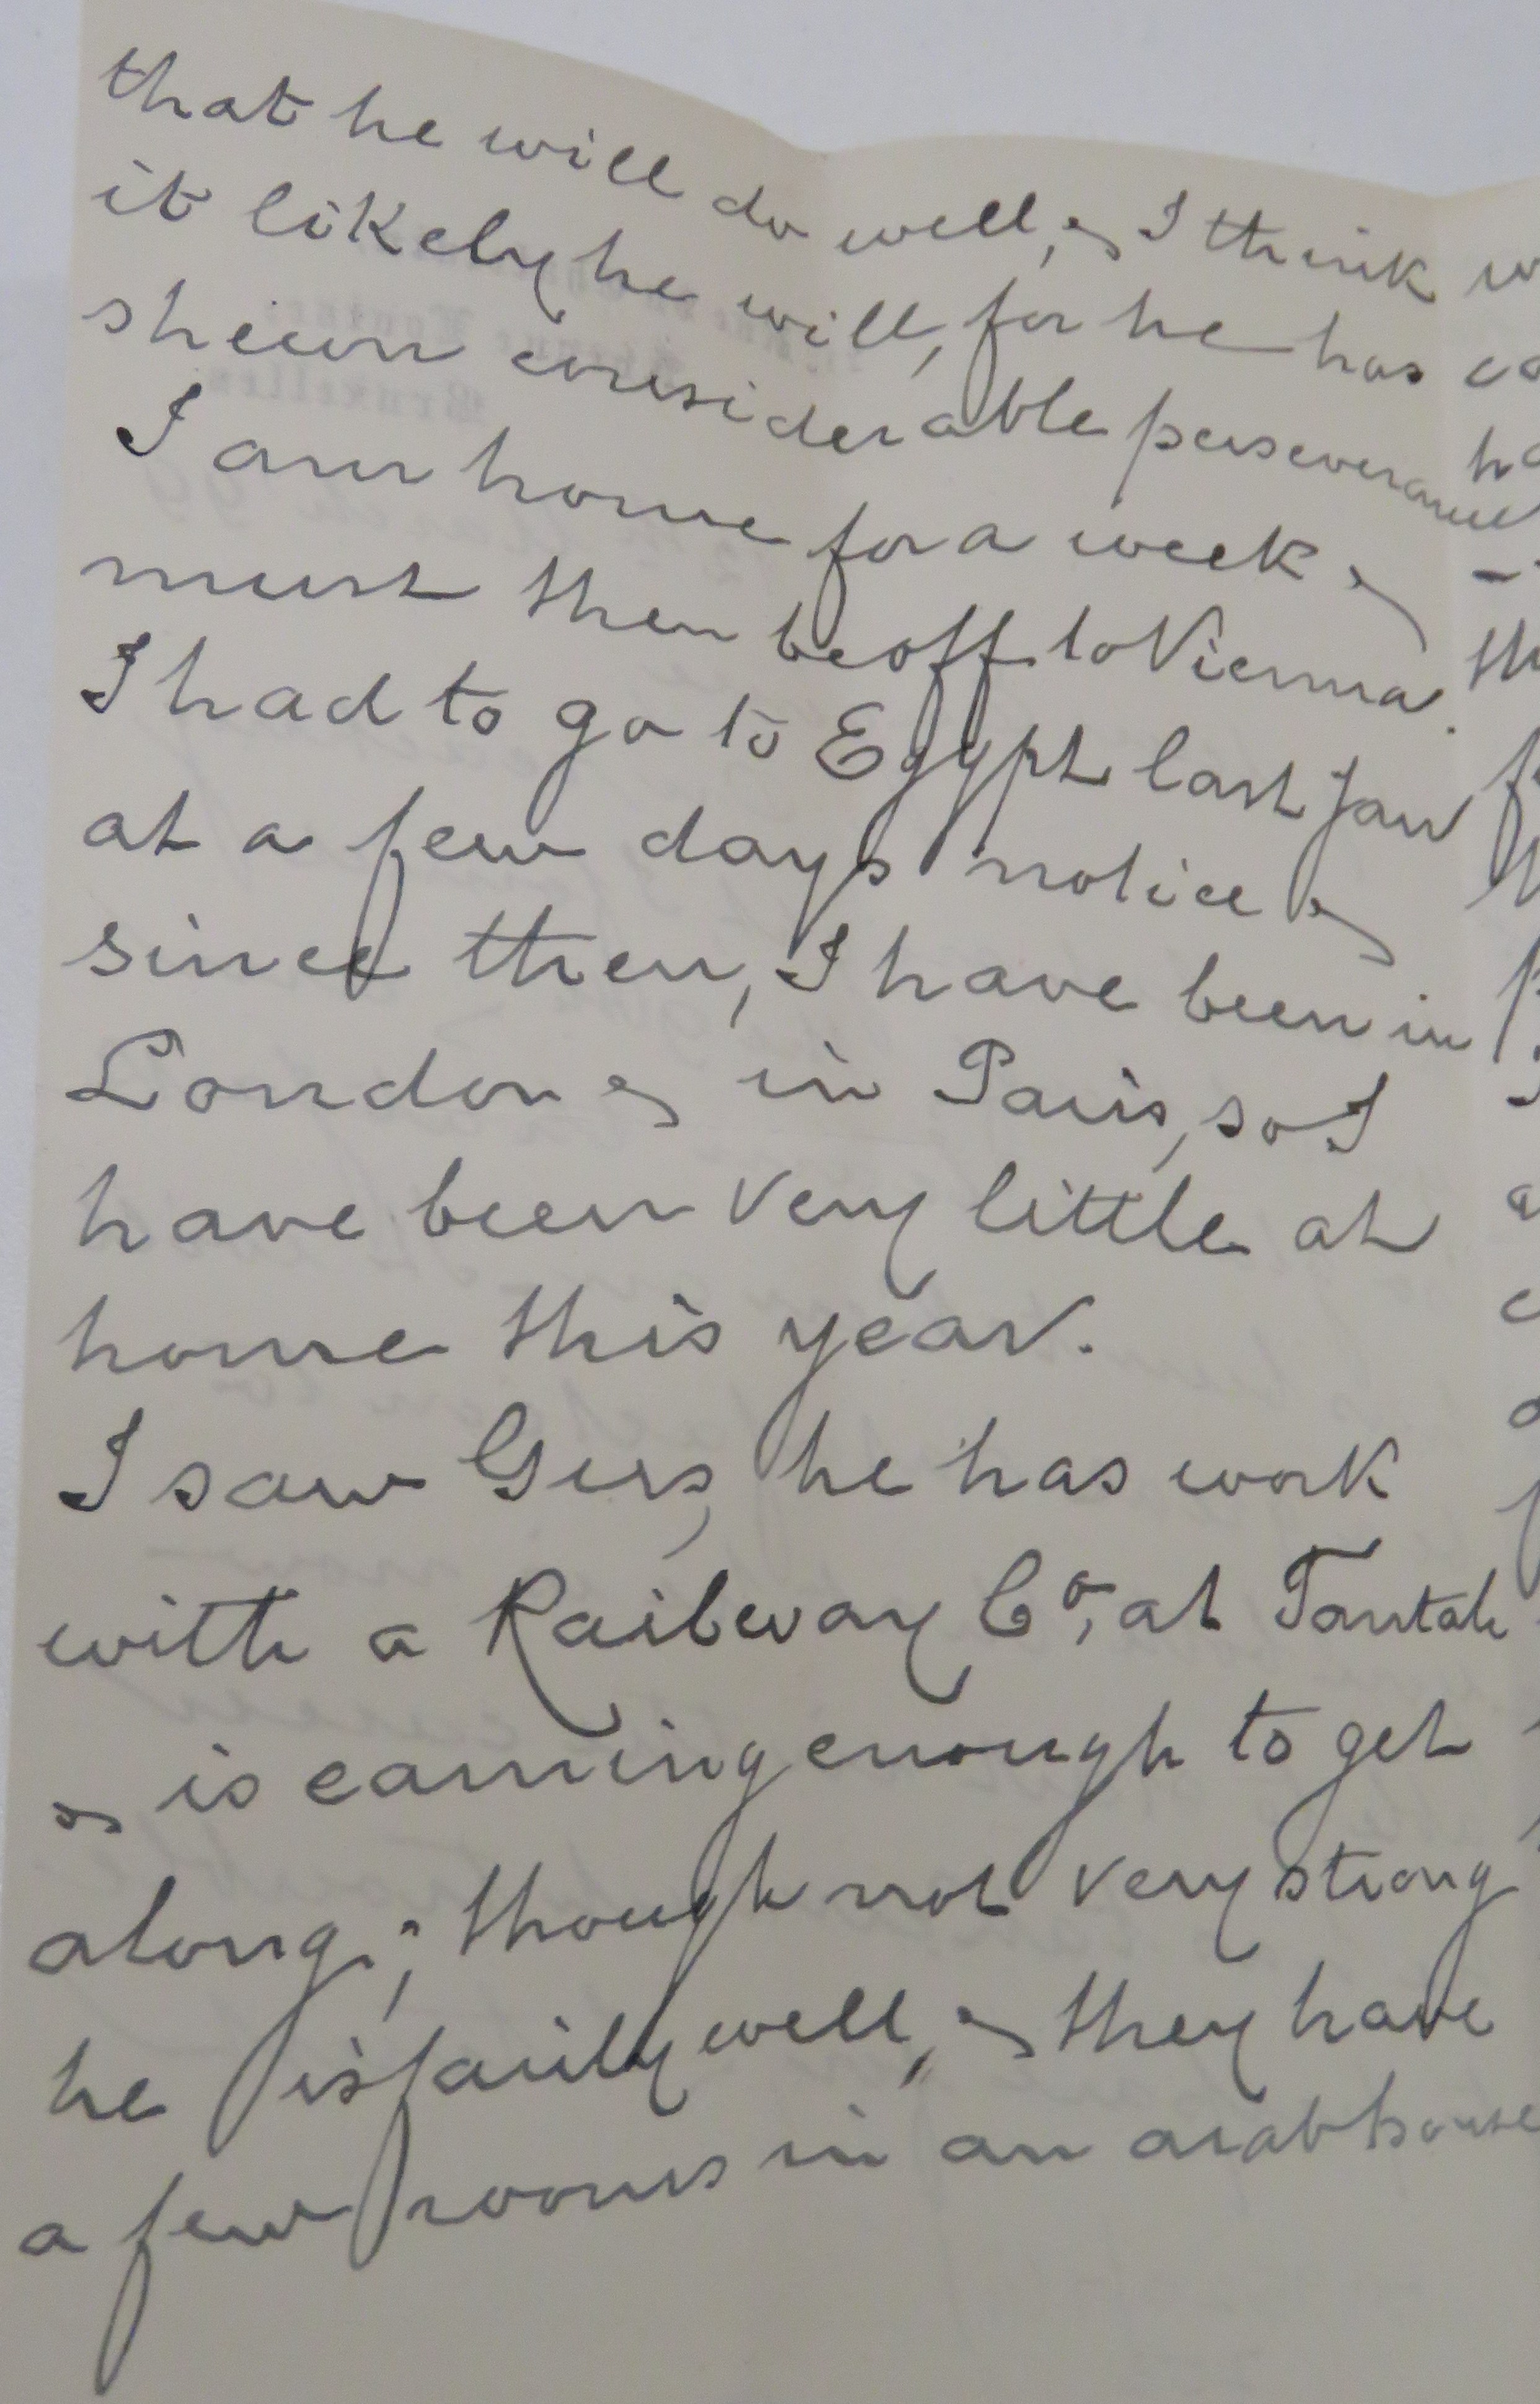 that he will do well, & I think
it likely he will, for he has
shewn considerable perseverance
I am home for a week &
must then be off to Vienna.
I had to go to Egypt last Jan
at a few days notice &
since then, I have been in
London & in Paris, so I
have been very little at
home this year.
I saw Gus, he has work
with a Railway Co, at Tantah
& is earning enough to get
along; though not very strong
he is fairly well, & they have
a few rooms in an arab house